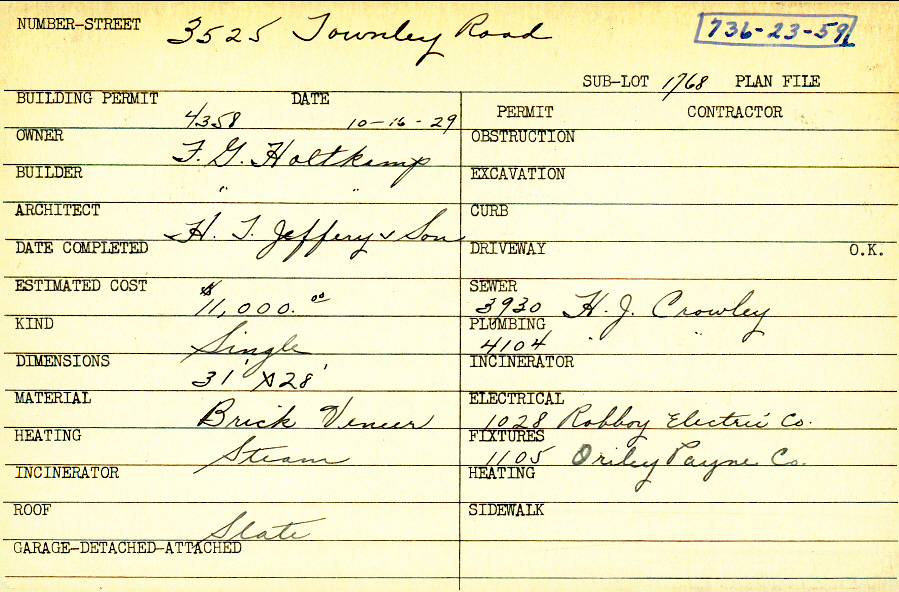 NUMBER-STREET 3525 Townley Road 736-23-59
SUB-LOT 1768 PLAN FILE
BUILDING PERMIT DATE
4358 10-16-29
PERMIT CONTRACTOR
OWNER F. G. Holtkamp
BUILDER " "
ARCHITECT H. T. Jeffery & Son
DATE COMPLETED
ESTIMATED COST $11,000.00
KIND Single
DIMENSIONS 31' X 28'
MATERIAL Brick Veneer
HEATING Steam
INCINERATOR
ROOF Slate
GARAGE-DETACHED-ATTACHED
OBSTRUCTION
EXCAVATION
CURB
DRIVEWAY O.K.
SEWER
3930 H. J. Crowley
PLUMBING
4104 " "
INCINERATOR
ELECTRICAL
1028 Robboy Electric Co.
FIXTURES
1105 Payne Co.
HEATING
SIDEWALK